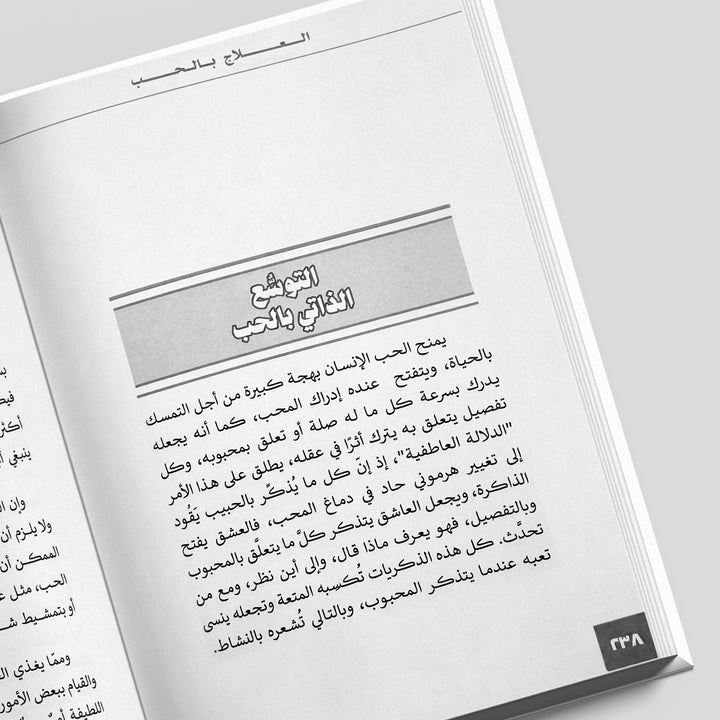 العلاج بالحب
التوسُّع
الذاتي بالحب
يمنح الحب الإنسان بهجة كبيرة من أجل التمسك
بالحياة، ويتفتح عنده إدراك المحب، كما أنه يجعله
يدرك بسرعة كل ما له صلة أو تعلق بمحبوبه، وكل
تفصيل يتعلق به يترك أثرًا في عقله، يطلق على هذا الأمر
"الدلالة العاطفية"، إذ إنّ كل ما يُذكِّر بالحبيب يَقُود
إلى تغيير هرموني حاد في دماغ المحب، فالعشق يفتح
الذاكرة، ويجعل العاشق يتذكر كلَّ ما يتعلَّق بالمحبوب
وبالتفصيل، فهو يعرف ماذا قال، وإلى أين نظر، ومع من
تحدَّث. كل هذه الذكريات تُكسِبه المتعة وتجعله ينسى
تعبه عندما يتذكر المحبوب، وبالتالي تُشعره بالنشاط.
٢٣٨
ينبغي
وإن
ولا يلزم أن
الممكن أن
الحب، مثل
أو بتمشيط
وممّا يغذي
والقيام ببعض الأمور
اللطيفة